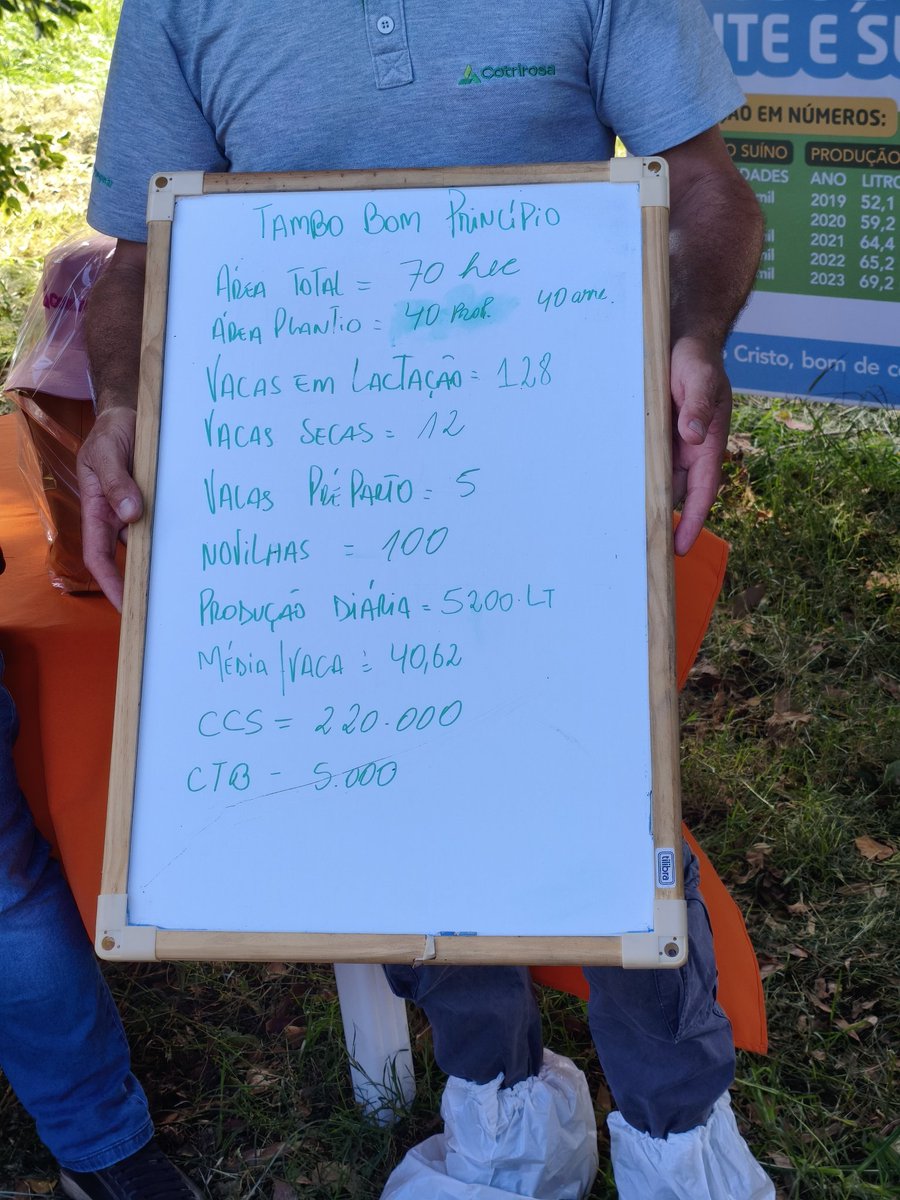 Cotrirosa
TAMBO BOM PRINCÍPIO
ÁREA TOTAL = 70 hec
ÁREA PLANTIO = 40 PROP. 40 arre.
VACAS EM LACTAÇÃO = 128
VACAS SECAS = 12
VACAS PRÉ PARTO = 5
NOVILHAS = 100
PRODUÇÃO DIÁRIA = 5200 LT
MÉDIA/VACA = 40,62
CCS = 220.000
CTB - 5.000
tilibra
NTE E SU
ÃO EM NÚMEROS:
O SUÍNO PRODUÇÃO
DADES ANO LITRO
mil 2019 52,1
2020 59,2
2021 64,4
mil 2022 65,2
mil 2023 69,2
Cristo, bom de co